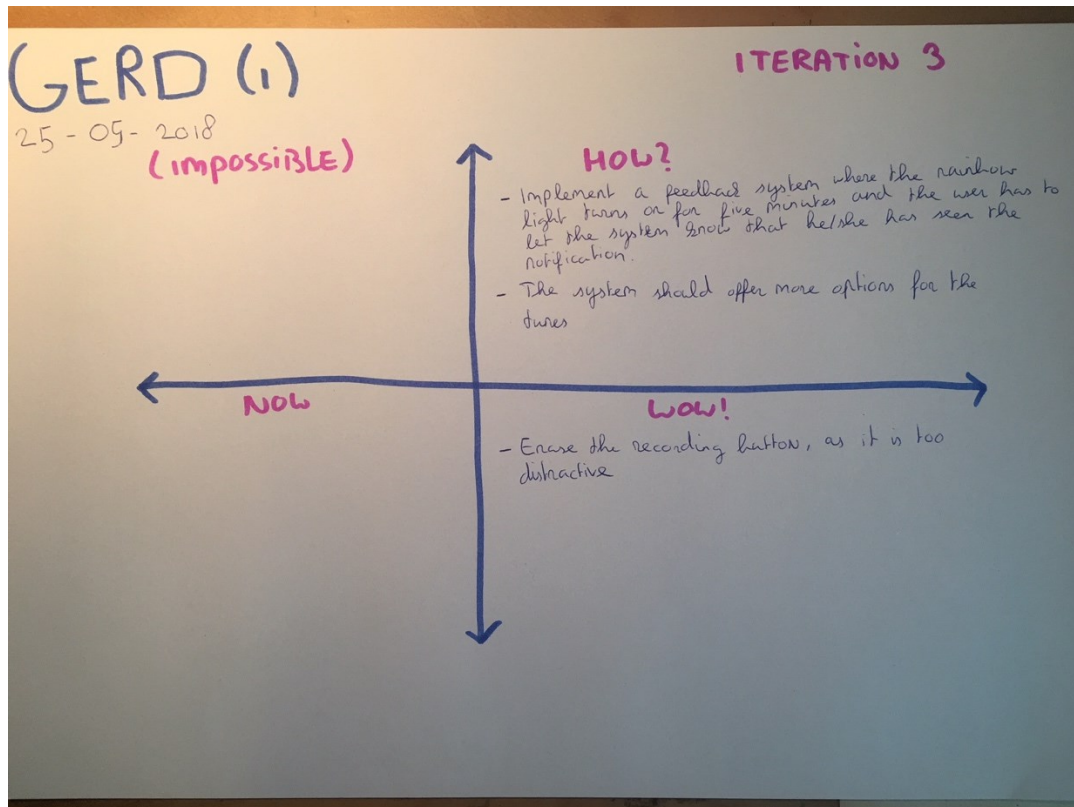 GERD (1)
ITERATION 3
25-05-2018
(IMPOSSIBLE)
HOW?
- Implement a feedback system where the rainbow
light turns on for five minutes and the user has to
let the system know that he/she has seen the
notification.
- The system should offer more options for the
tunes
NOW
WOW!
- Erase the recording button, as it is too
distractive